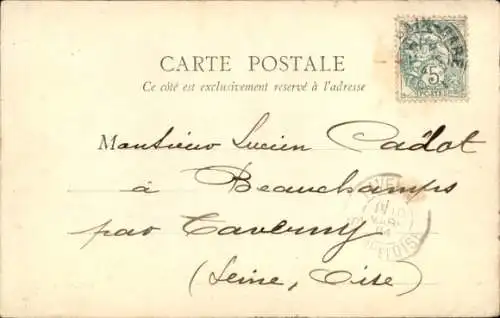 CARTE POSTALE
Ce côté est exclusivement reservé à l'adresse
5
POSTES
Monsieur Lucien Cadot
à Beauchamps
par Taverny
(Seine, Oise)